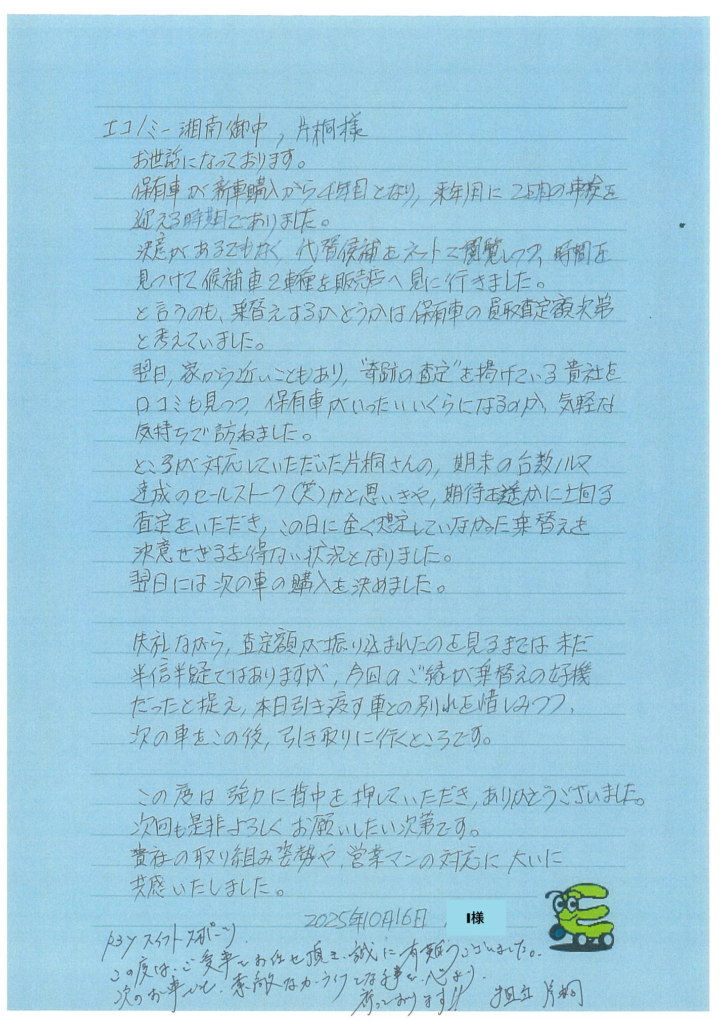 エコノミー湘南御中, 片桐様
お世話になっております。
保有車が新車購入から4年目となり, 来年1月に2回目の車検を
迎える時期でありました。
決意があるでもなく, 代替候補をネットで閲覧しつつ, 時間を
見つけて候補車2車種を販売店へ見に行きました。
と言うのも, 乗替えするかどうかは保有車の買取査定額次第
と考えていました。
翌日, 家から近いこともあり, "奇跡の査定"を掲げている貴社を
口コミも見つつ, 保有車がいったいいくらになるのか, 気軽な
気持ちで訪ねました。
ところが対応していただいた片桐さんの, 期末の台数ノルマ
達成のセールストーク(笑)かと思いきや, 期待を遥かに上回る
査定をいただき, この日に全く想定していなかった乗替えを
決意せざるを得ない状況となりました。
翌日には次の車の購入を決めました。
失礼ながら, 査定額が振り込まれたのを見るまでは未だ
半信半疑ではありますが, 今回のご縁が乗替えの好機
だったと捉え, 本日引き渡す車との別れを惜しみつつ,
次の車をこの後, 引き取りに行くところです。
この度は強力に背中を押していただき, ありがとうございました。
次回も是非よろしくお願いしたい次第です。
貴社の取り組み姿勢や, 営業マンの対応に大いに
共感いたしました。
2025年10月16日 I様
スイフトスポーツ
この度は、ご愛車をお任せ頂き、誠に有難うございました。
次のお車でも、素敵なカーライフとなる事を、心より
祈っております!! 担当 片桐